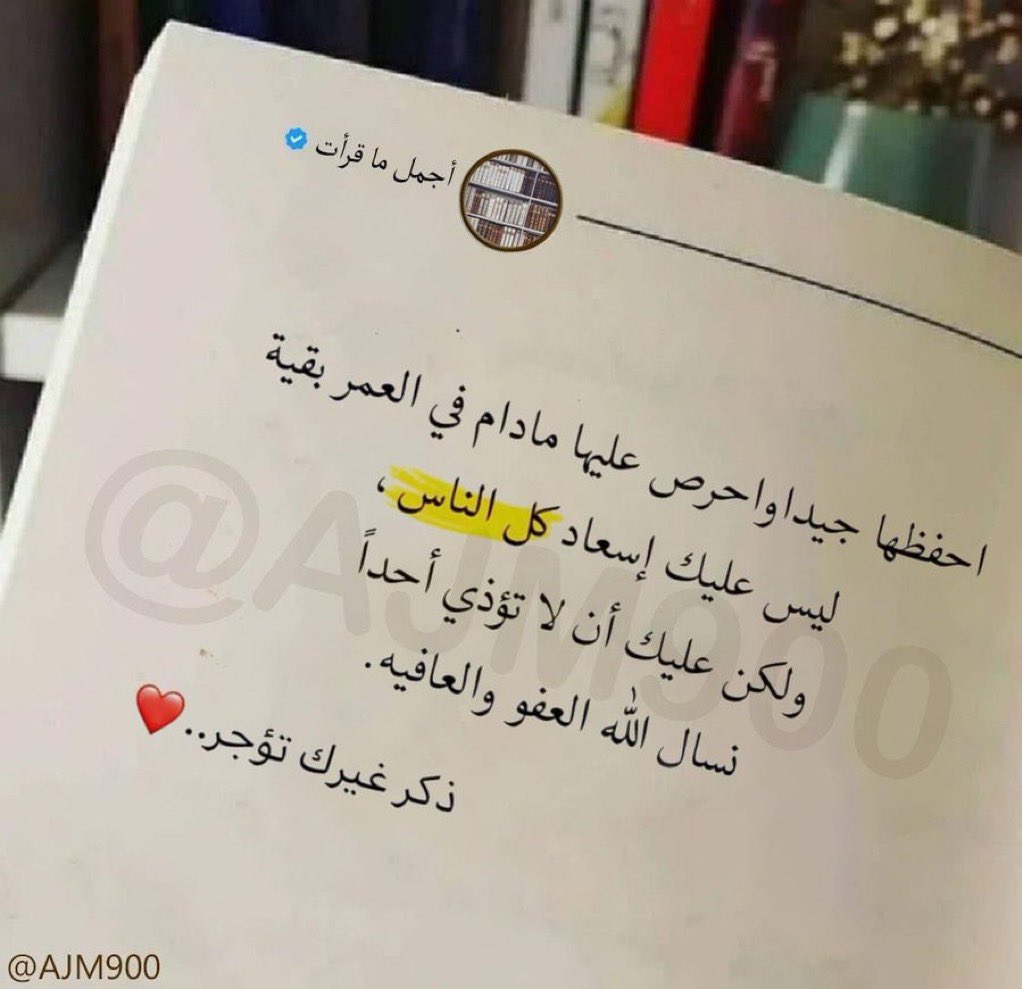 أجمل ما قرأت
احفظها جيداواحرص عليها مادام في العمر بقية
ليس عليك إسعاد كل الناس ،
ولكن عليك أن لا تؤذي أحداً
نسال الله العفو والعافيه.
ذكر غيرك تؤجر..❤️
@AJM900
@AJM900